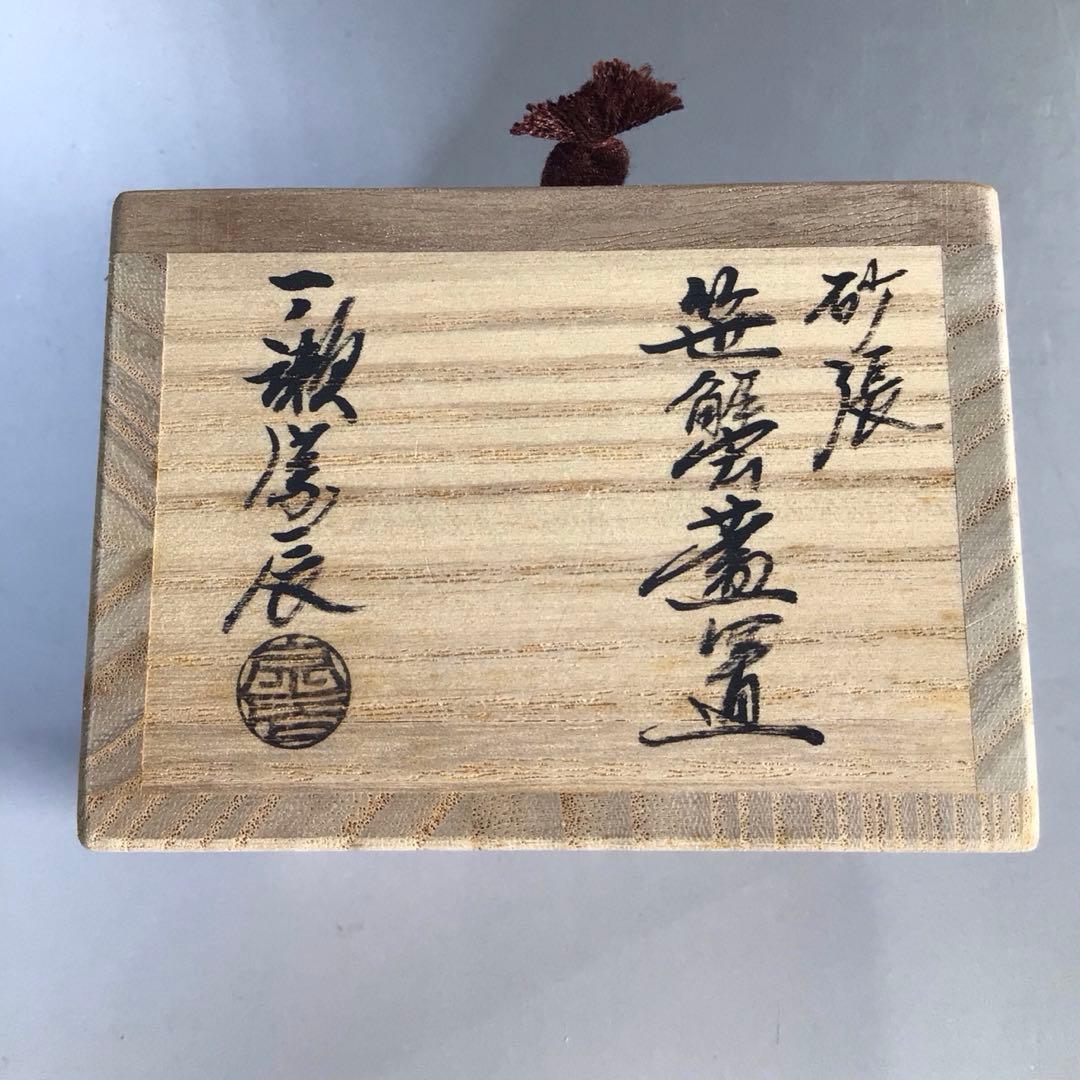 砂張
笹蟹蓋置
一ノ瀬勝辰